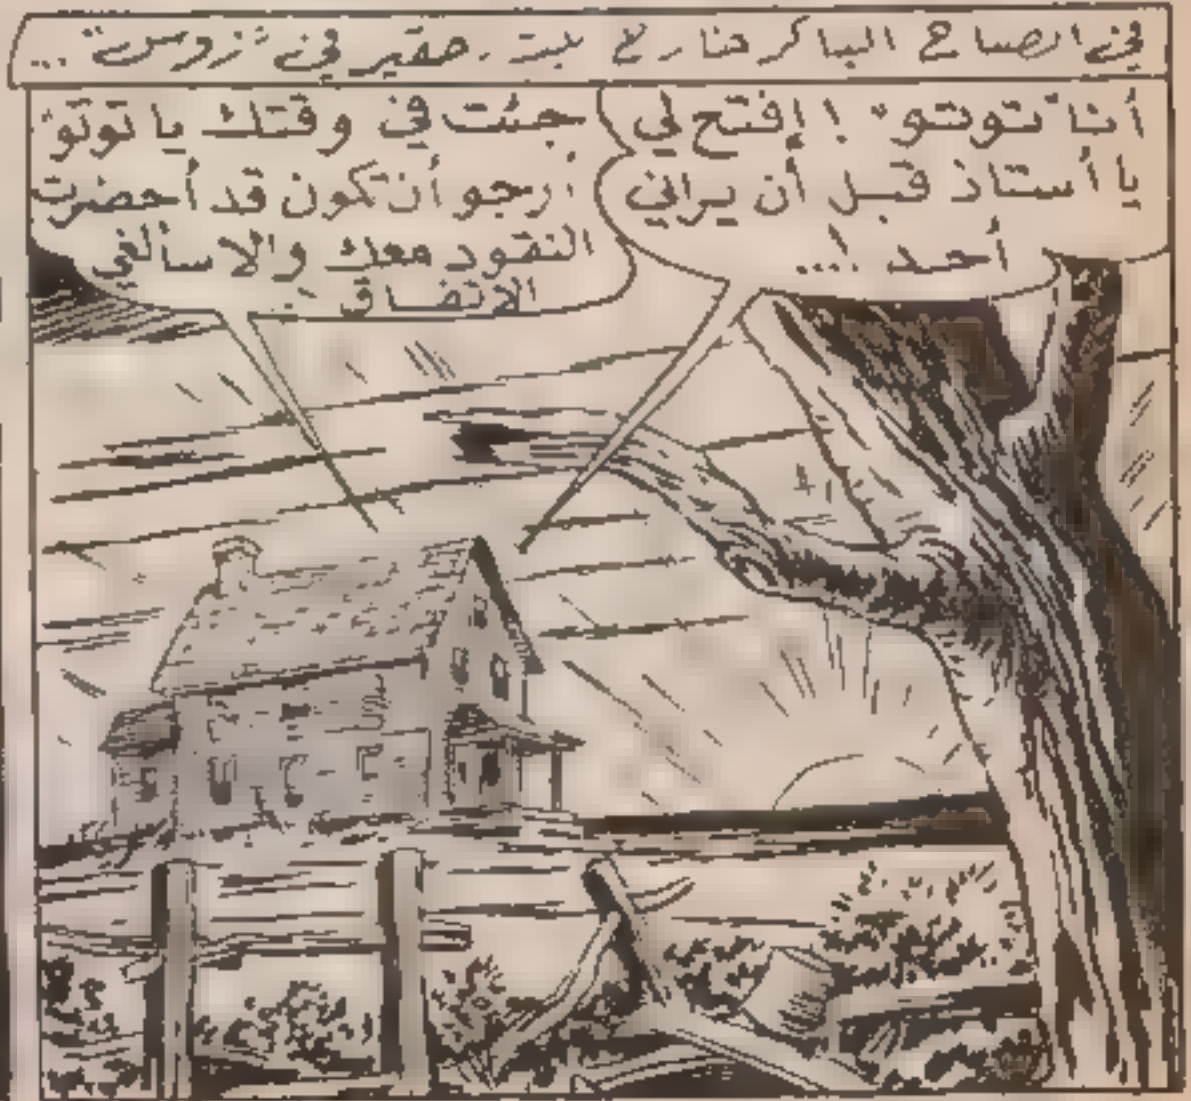 في الصباح الباكر خارج بيت حقير في "زوس"...
أنا "توتو" ! إفتح لي
يا أستاذ قبل أن يراني
أحد !...
جئت في وقتك يا توتو
أرجو أن تكون قد أحضرت
النقود معك والا سألغي
الاتفاق